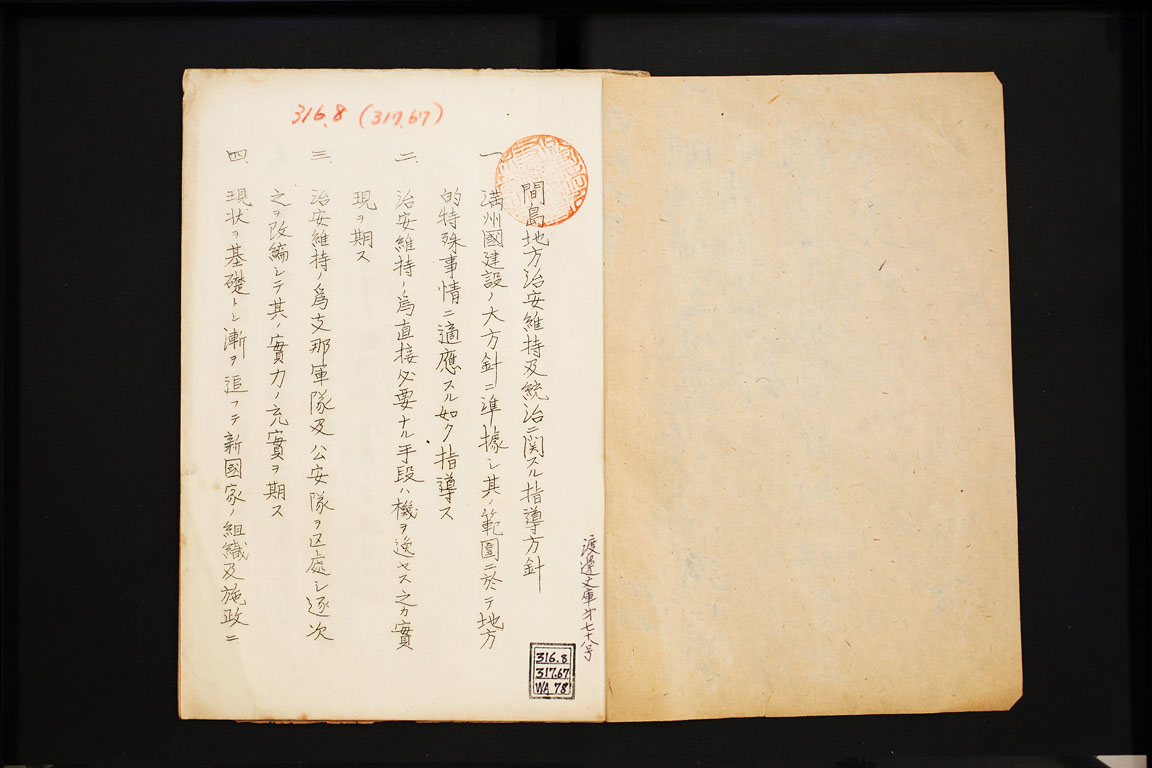 316.8 (317.67)
間島地方治安維持及統治ニ関スル指導方針
一、満州國建設ノ大方針ニ準據シ其ノ範圍ニ於テ地方
的特殊事情ニ適應スル如ク指導ス
二、治安維持ノ為直接必要ナル手段ハ機ヲ逸セス之カ實
現ヲ期ス
三、治安維持ノ為支那軍隊及公安隊ヲ区處シ逐次
之ヲ改編シテ其ノ實力ノ充實ヲ期ス
四、現状ヲ基礎トシ漸ヲ追フテ新國家ノ組織及施政ニ
渡邊文庫オ七十八号
316.8
317.67
WA 78